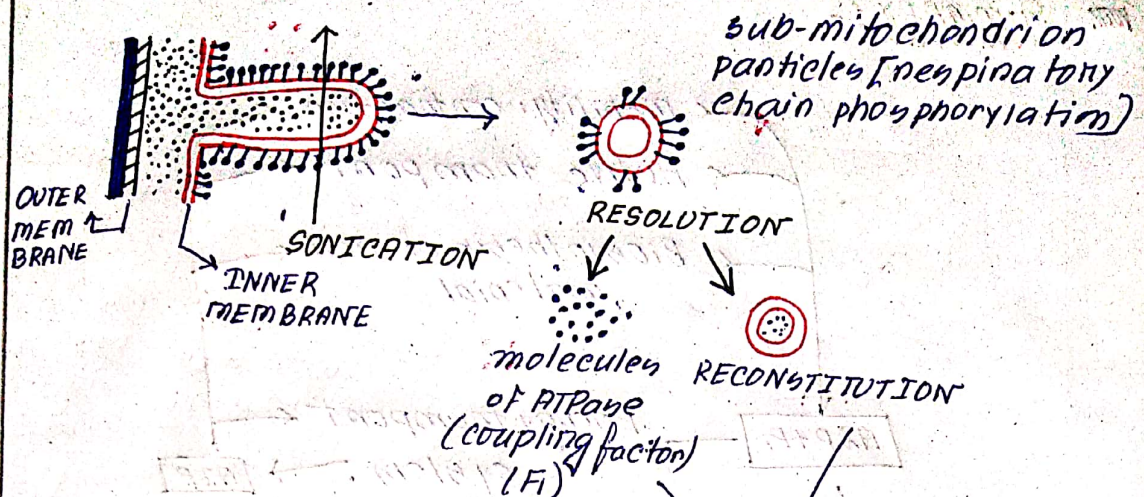 sub-mitochondrion
particles [respiratory
chain phosphorylation]
OUTER
MEM
BRANE
SONICATION
INNER
MEMBRANE
RESOLUTION
molecules
of ATPase
(coupling factor)
(F1)
RECONSTITUTION